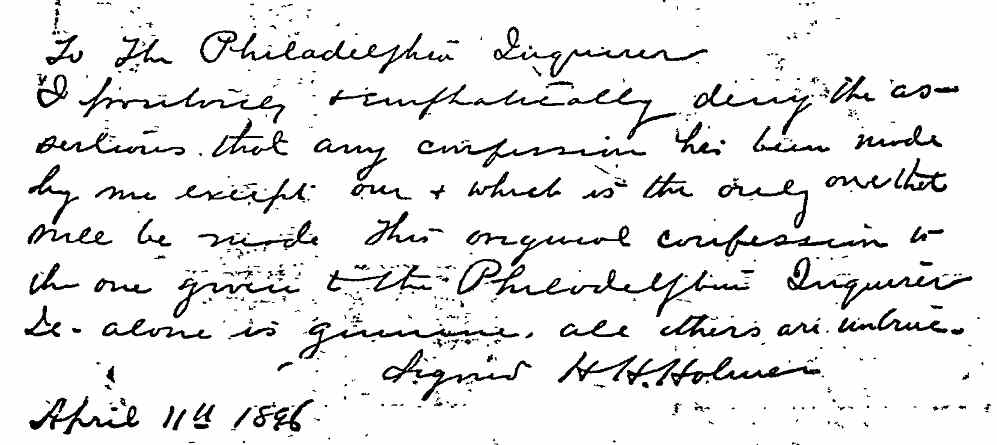 To The Philadelphia Inquirer
I positively & emphatically deny the as-
sertions that any confession has been made
by me except one & which is the only one that
will be made This original confession is
the one given to the Philadelphia Inquirer
alone is genuine. all others are untrue.
Signed H. H. Holmes
April 11th 1896